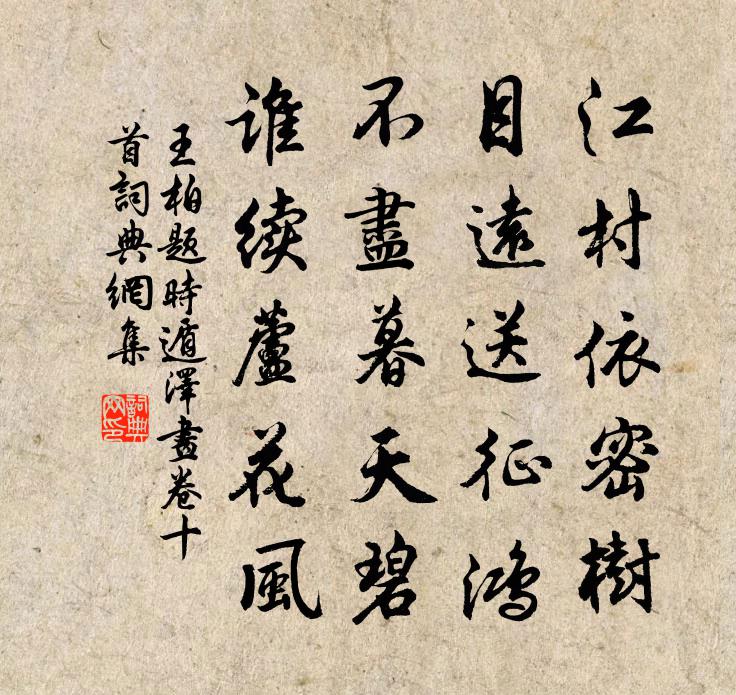 江村依密樹
目遠送征鸿
不盡暮天碧
谁续蘆花風
王柏題時遁澤畫卷十
首詞典網集
詞典
网印